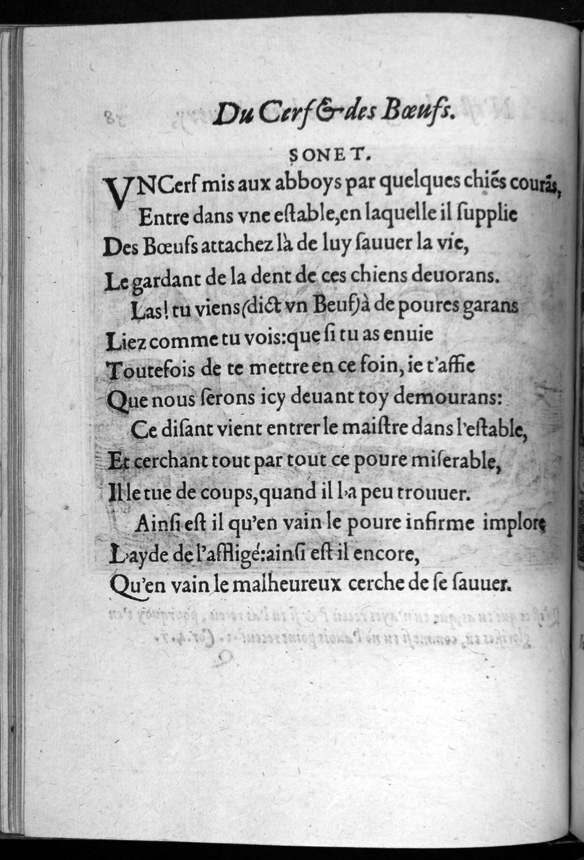 Du Cerf & des Bœufs.
SONET.
VN Cerf mis aux abboys par quelques chiẽs courãs,
Entre dans vne eſtable, en laquelle il ſupplie
Des Bœufs attachez là de luy ſauuer la vie,
Le gardant de la dent de ces chiens deuorans.
Las! tu viens (dict vn Beuf) à de poures garans
Liez comme tu vois: que ſi tu as enuie
Toutefois de te mettre en ce foin, ie t'affie
Que nous ſerons icy deuant toy demourans:
Ce diſant vient entrer le maiſtre dans l'eſtable,
Et cerchant tout par tout ce poure miſerable,
Il le tue de coups, quand il l'a peu trouuer.
Ainſi eſt il qu'en vain le poure infirme implore
L'ayde de l'affligé: ainſi eſt il encore,
Qu'en vain le malheureux cerche de ſe ſauuer.